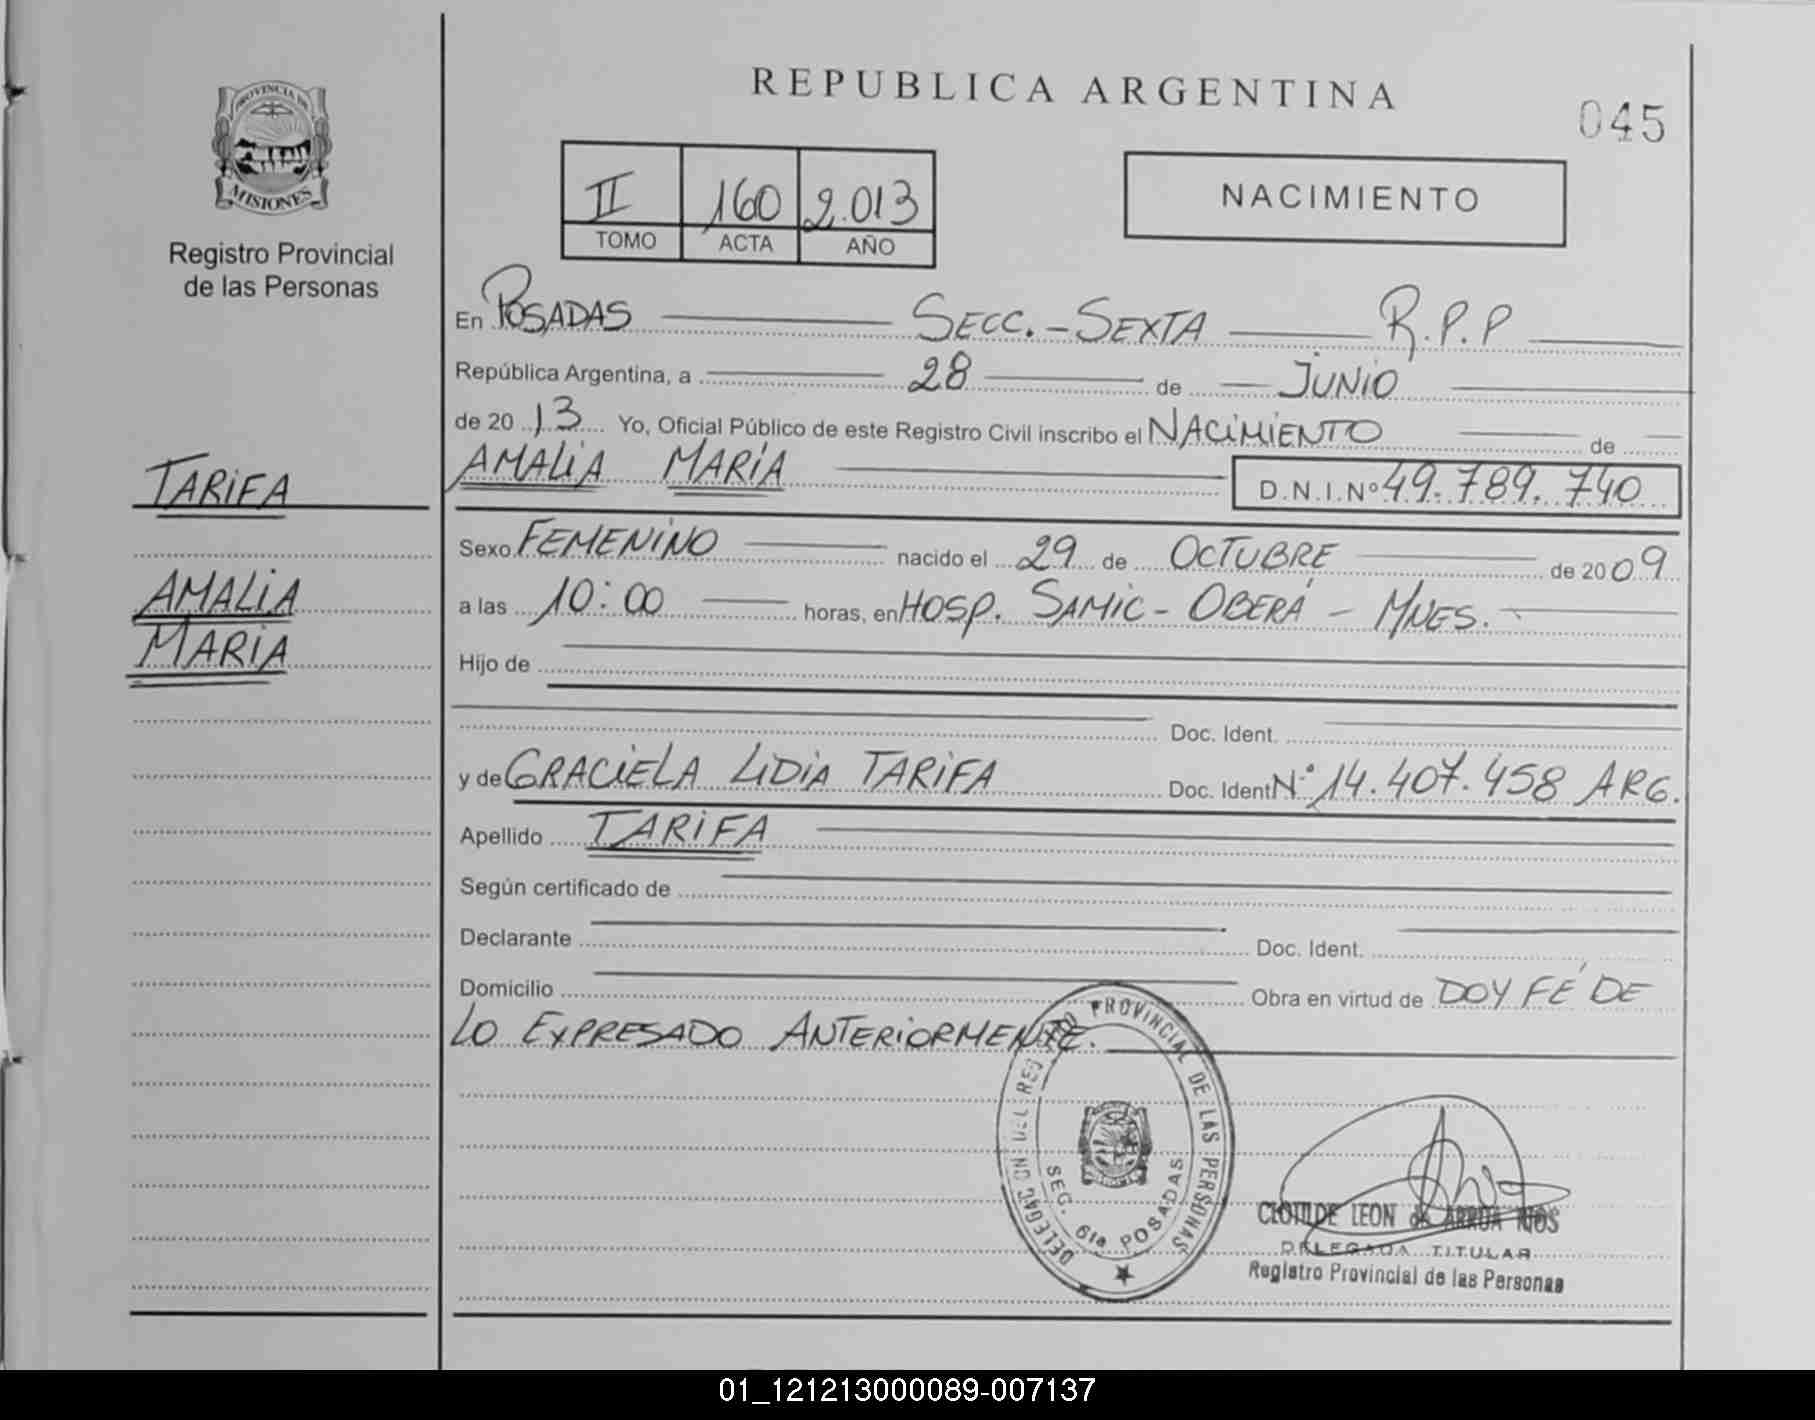 PROVINCIA DE
MISIONES
Registro Provincial
de las Personas
TARIFA
AMALIA
MARIA
REPUBLICA ARGENTINA
045
II 160 2.013
TOMO ACTA AÑO
NACIMIENTO
En POSADAS SECC.-SEXTA R.P.P
República Argentina, a 28 de JUNIO
de 2013 Yo, Oficial Público de este Registro Civil inscribo el NACIMIENTO de
AMALIA MARÍA D.N.I.Nº 49.789.740
Sexo FEMENINO nacido el 29 de OCTUBRE de 2009
a las 10:00 horas, en HOSP. SAMIC - OBERÁ - MNES.-
Hijo de
Doc. Ident.
y de GRACIELA LIDIA TARIFA Doc. Ident Nº 14.407.458 ARG.
Apellido TARIFA
Según certificado de
Declarante Doc. Ident.
Domicilio Obra en virtud de DOY FÉ DE
LO EXPRESADO ANTERIORMENTE.
DELEGACION DEL REGISTRO PROVINCIAL DE LAS PERSONAS
SEC. 6ta POSADAS
CLOTILDE LEON de ARRUA RIOS
DELEGADA TITULAR
Registro Provincial de las Personas
01_121213000089-007137